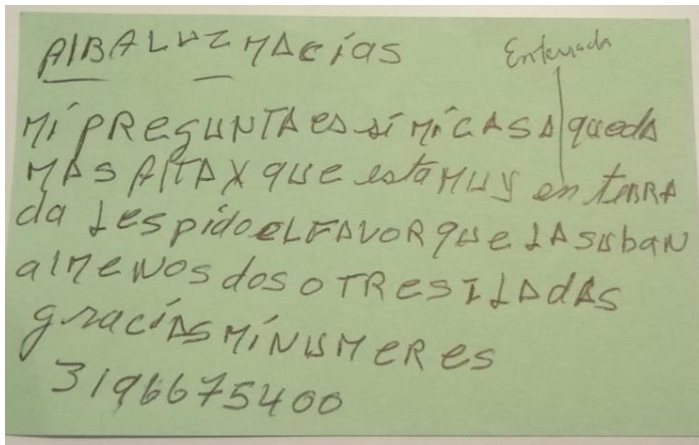 AlBALUZ MAcías
Enterrada
Mi pREgUNTA es si Mi CASA queda
MAS AlTA X que esta MUY en teRRA
da Les pido eL FAVOR que LA SUban
al Menos dos o TRes ILADAS
gracias Mi NUMeR es
3196675400